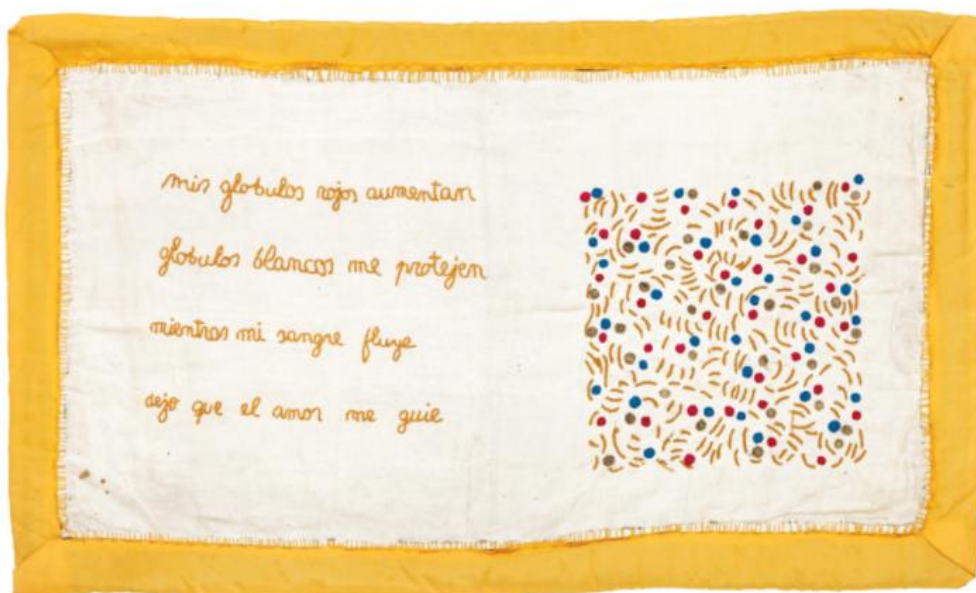 mis globulos rojos aumentan
globulos blancos me protejen
mientras mi sangre fluye
dejo que el amor me guie